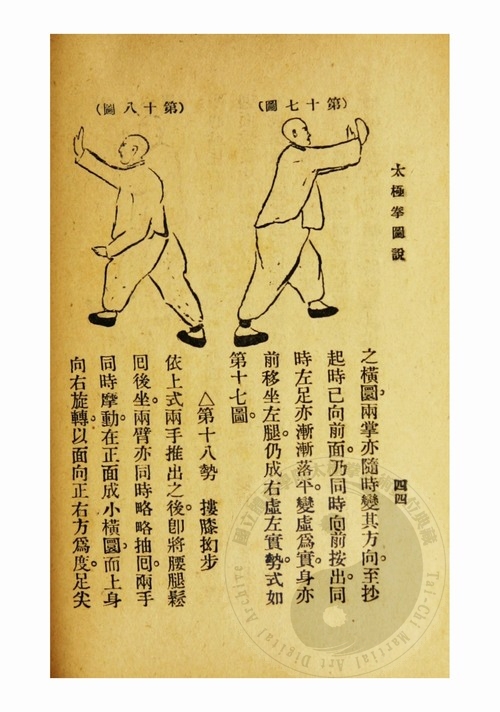 太極拳圖說
四四
(第十七圖)
(第十八圖)
之橫圜，兩掌亦隨時變其方向。至抄
起時已向前面。乃同時向前按出。同
時左足亦漸漸落平。變虛爲實。身亦
前移坐左腿。仍成右虛左實。勢式如
第十七圖。
△第十八勢　摟膝拗步
依上式兩手推出之後。卽將腰腿鬆
囘後坐。兩臂亦同時略略抽囘。兩手
同時摩動。在正面成小橫圜，而上身
向右旋轉。以面向正右方爲度。足尖
Tai-Chi Martial Art Digital Archive